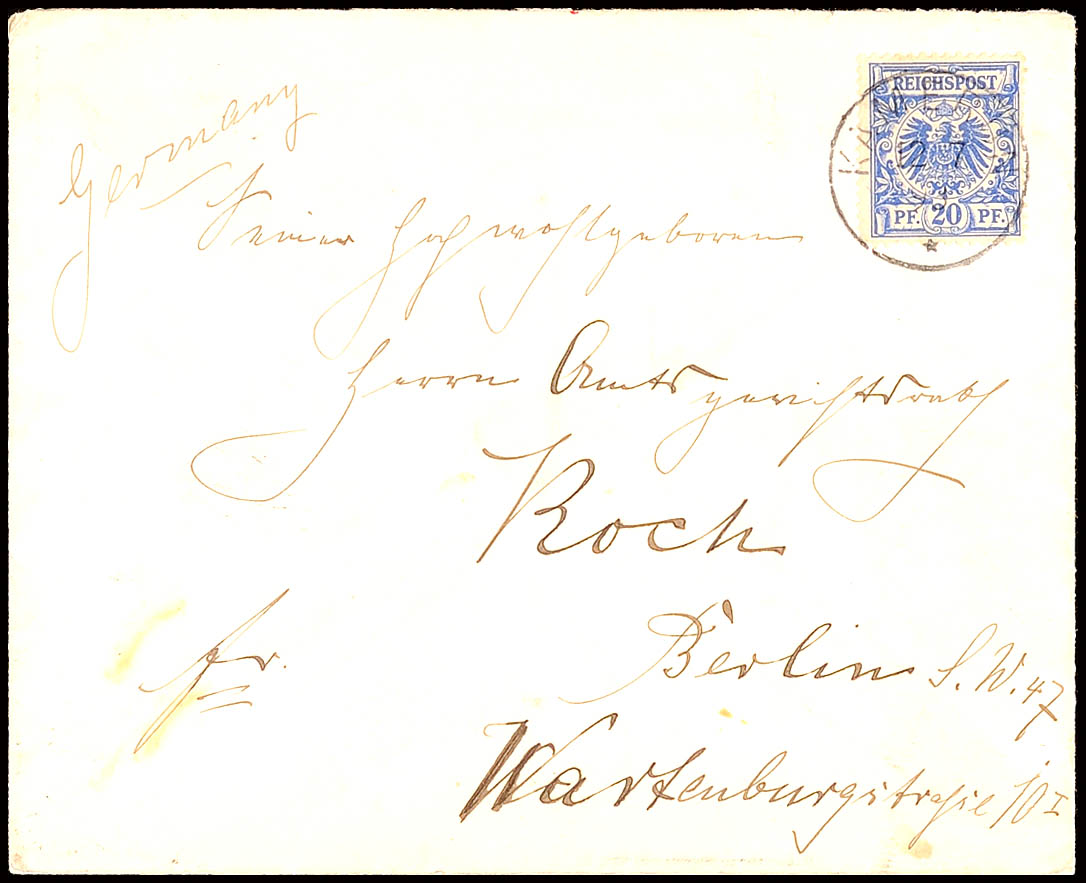 Germany
REICHSPOST
PF. 20 PF.
Seiner Hochwohlgeboren
Herrn Amtsgerichtsrath
Koch
Berlin S. W. 47
fr.
Wartenburgstraße 10 I